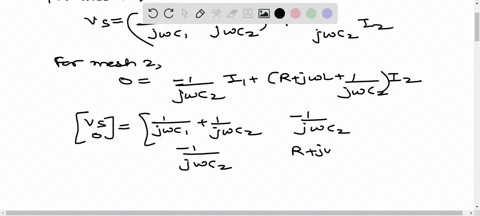 Vs = ( jωC1 jωC2 jωC2 I2
For mesh 2,
0 = -1/jωC2 I1 + (R+jωL+1/jωC2)I2
[Vs 0] = [1/jωC1 + 1/jωC2 -1/jωC2
-1/jωC2 R+jω